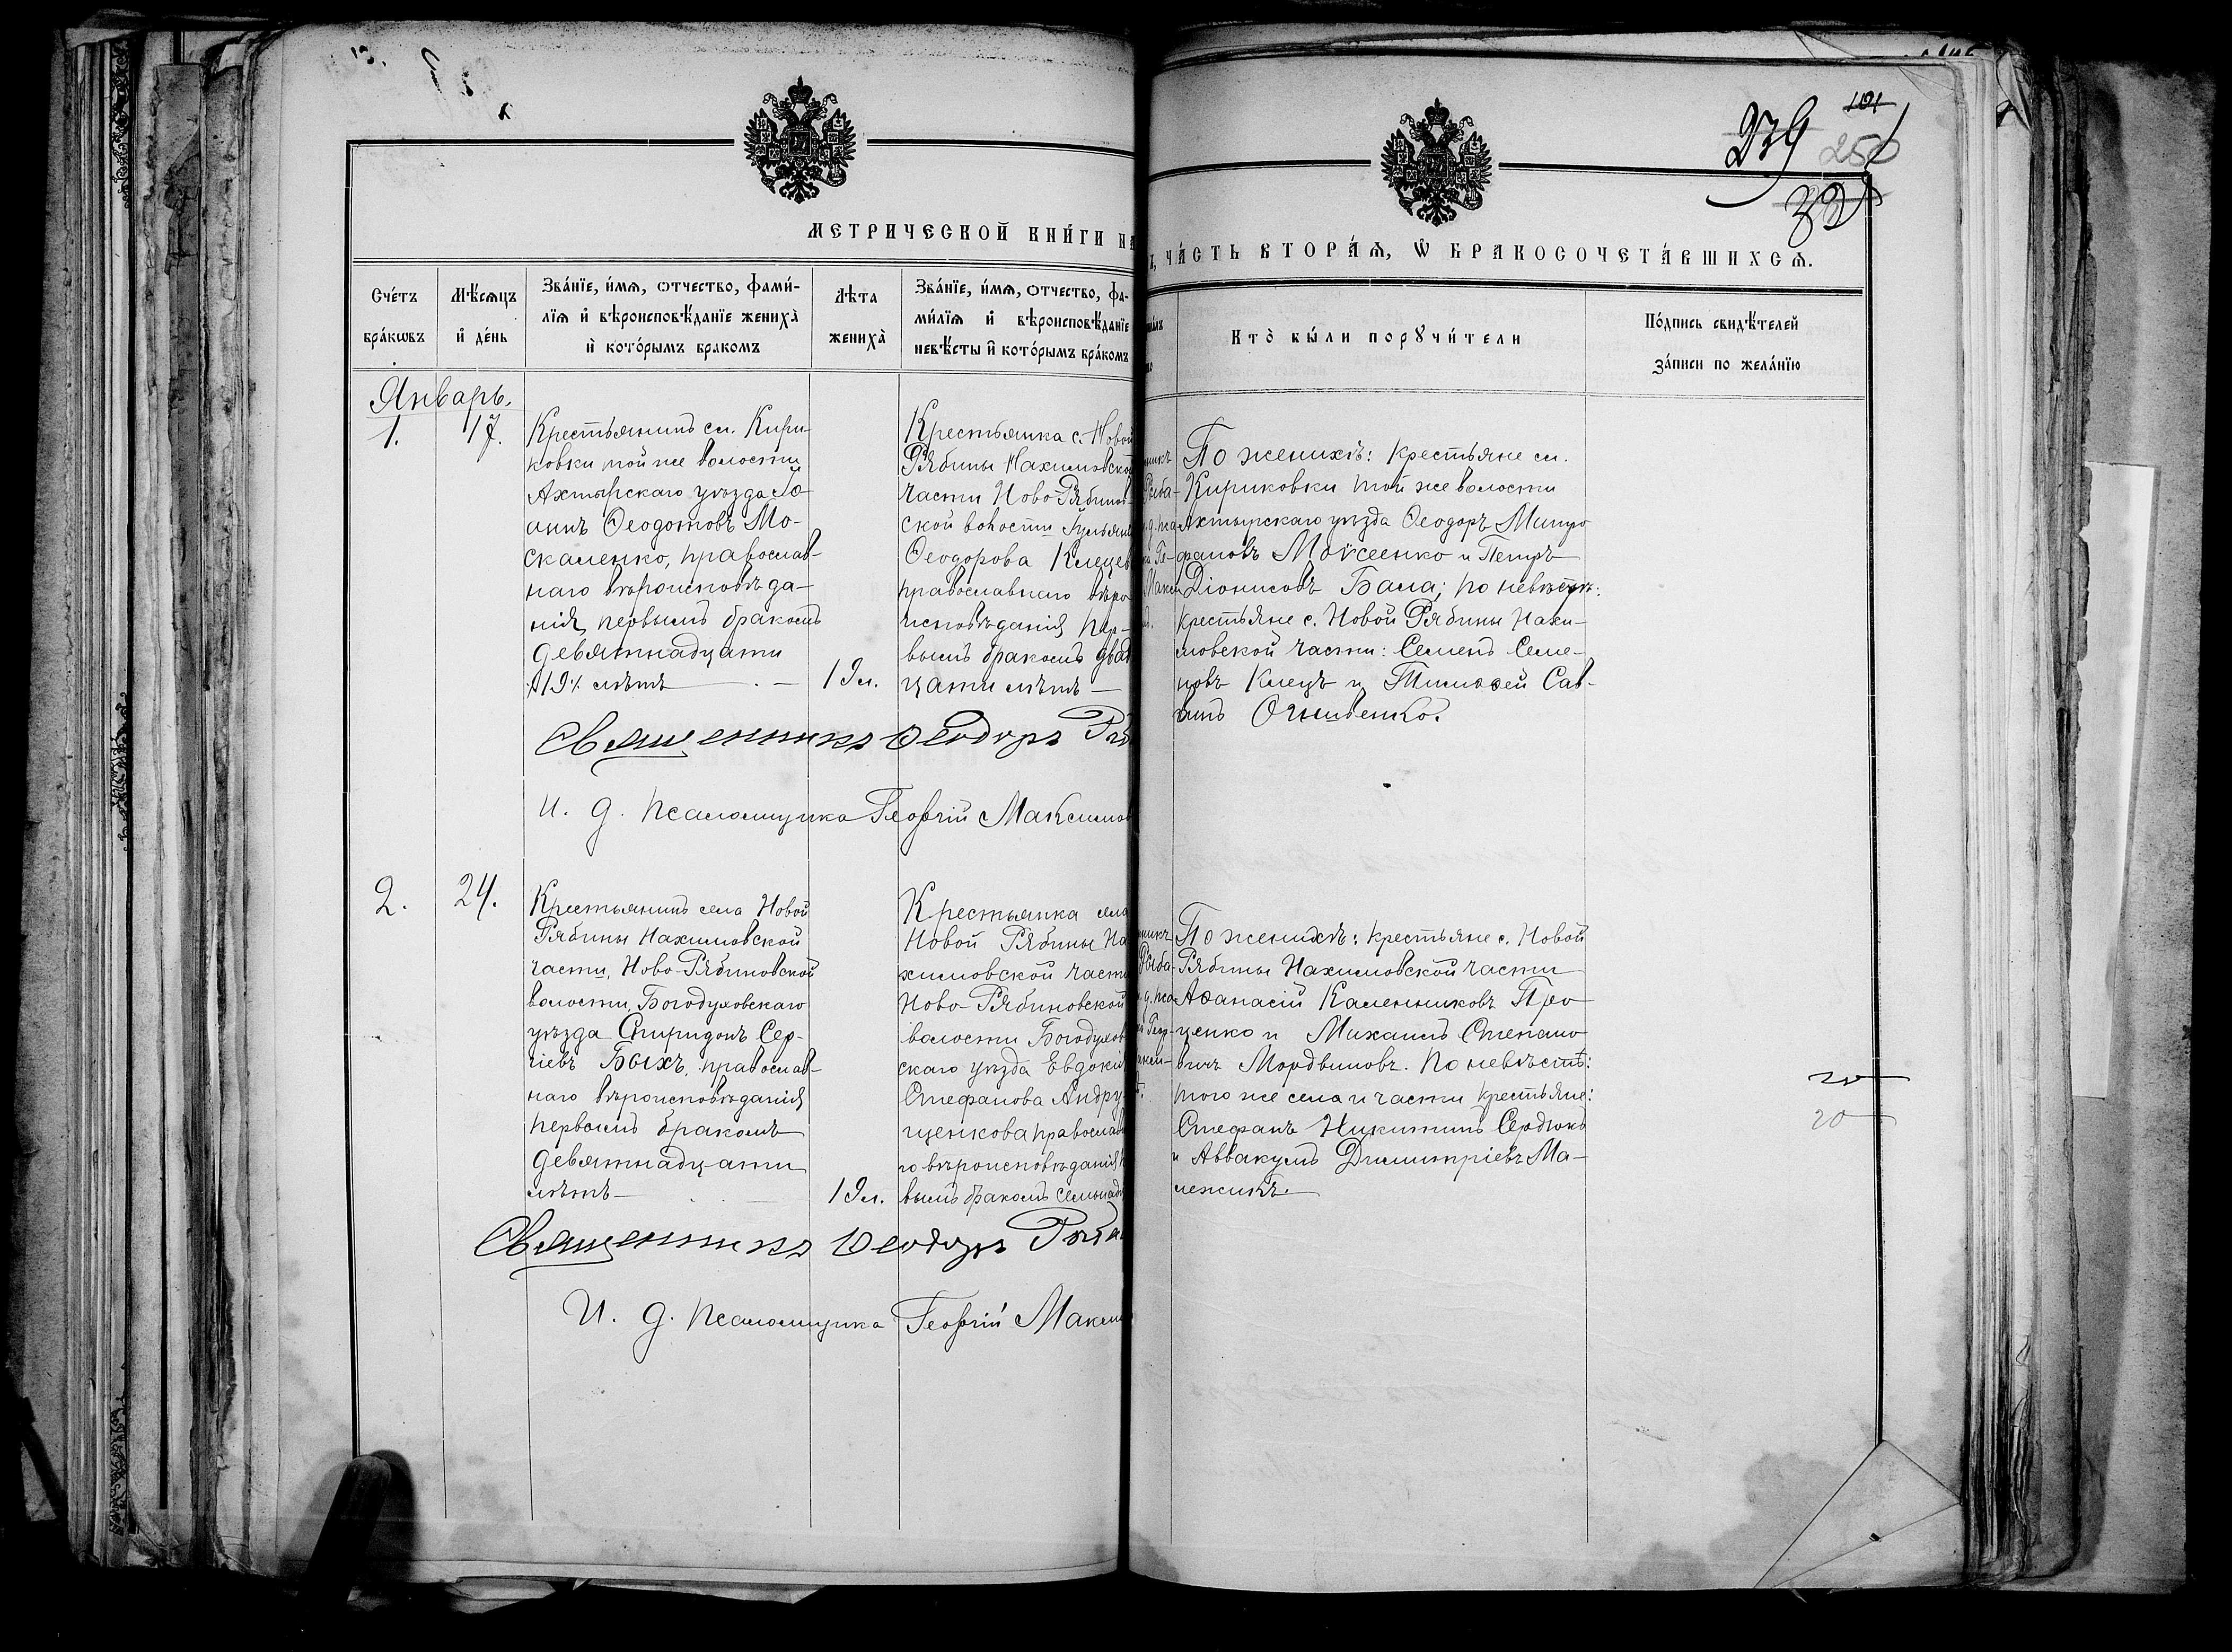 239
101
250
МЕТРИЧЕСКОЙ КНИ́ГИ НА
ЧА́СТЬ ВТОРА́Ѧ, Ѡ҆ БРАКОСОЧЕТА́ВШИХСѦ.
Сче́тъ бра́кѡвъ
Мѣ́сѧцъ и҆ де́нь
Зва́нїе, и́мѧ, ѻтчество, фами́-
лїѧ и҆ вѣроисповѣ́данїе жениха̀
и҆ кото́рымъ бракомъ
Лѣта жениха̀
Зва́нїе, и́мѧ, ѻтчество, фа-
ми́лїѧ и҆ вѣроисповѣ́данїе
невѣ́сты и҆ кото́рымъ бра́комъ
Кто̀ бы́ли порꙋчи́тели
По́дпись свидѣ́телей
за́писи по жела́нїю
Январь.
1.
17.
Крестьянинъ сл. Кири-
ковки той же волости
Ахтырскаго уѣзда Іо-
аннъ Ѳеодотовъ Мо-
скаленко, православ-
наго вѣроисповѣда-
нія, первымъ бракомъ
девятнадцати
19 лѣтъ
19 л.
Крестьянка с. Новой
Рябины Нахимовской
части Ново-Рябинов-
ской волости
Ѳеодорова Клецев
православнаго вѣро
исповѣданія пер-
вымъ бракомъ двад
цати лѣтъ
По женихѣ: крестьяне сл.
Кириковки той же волости
Ахтырскаго уѣзда Ѳеодоръ Митро
фановъ Моисеенко и Петръ
Діонисовъ Бала; по невѣстѣ:
крестьяне с. Новой Рябины Нахи-
мовской части: Семенъ Семе-
новъ Клецъ и Тимоѳей Сав-
винъ Огниенко.
Священникъ Ѳеодоръ
И. д. псаломщика Георгій Максимов
2.
24.
Крестьянинъ села Новой
Рябины Нахимовской
части, Ново-Рябиновской
волости, Богодуховскаго
уѣзда Спиридонъ Сер-
гіевъ Быхъ, православ-
наго вѣроисповѣданія
первымъ бракомъ
девятнадцати
лѣтъ
19 л.
Крестьянка села
Новой Рябины На
химовской части
Ново-Рябиновской
волости Богодухов
скаго уѣзда Евдокія
Стефанова Андру
щенкова православ
го вѣроисповѣданія
вымъ бракомъ семьнадц
По женихѣ: крестьяне с. Новой
Рябины Нахимовской части
Аѳанасій Калинниковъ Про
ценко и Михаилъ Степано
вичъ Мордвиновъ. По невѣстѣ:
того же села и части крестьяне:
Стефанъ Никитинъ Сердюкъ
и Аввакумъ Димитріевъ Ма-
лежикъ.
20
20
Священникъ Ѳеодоръ Рыба
И. д. псаломщика Георгій Макси